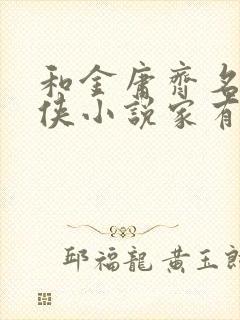 和金庸齊名
俠小說家有
邱福龍 黃玉郎